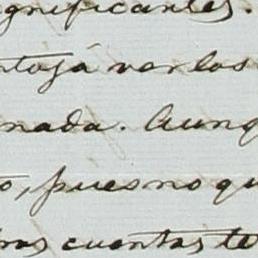 gnificantes.
ntojá verlos
nada. Aunq
o, pues no qu
tras cuentas te